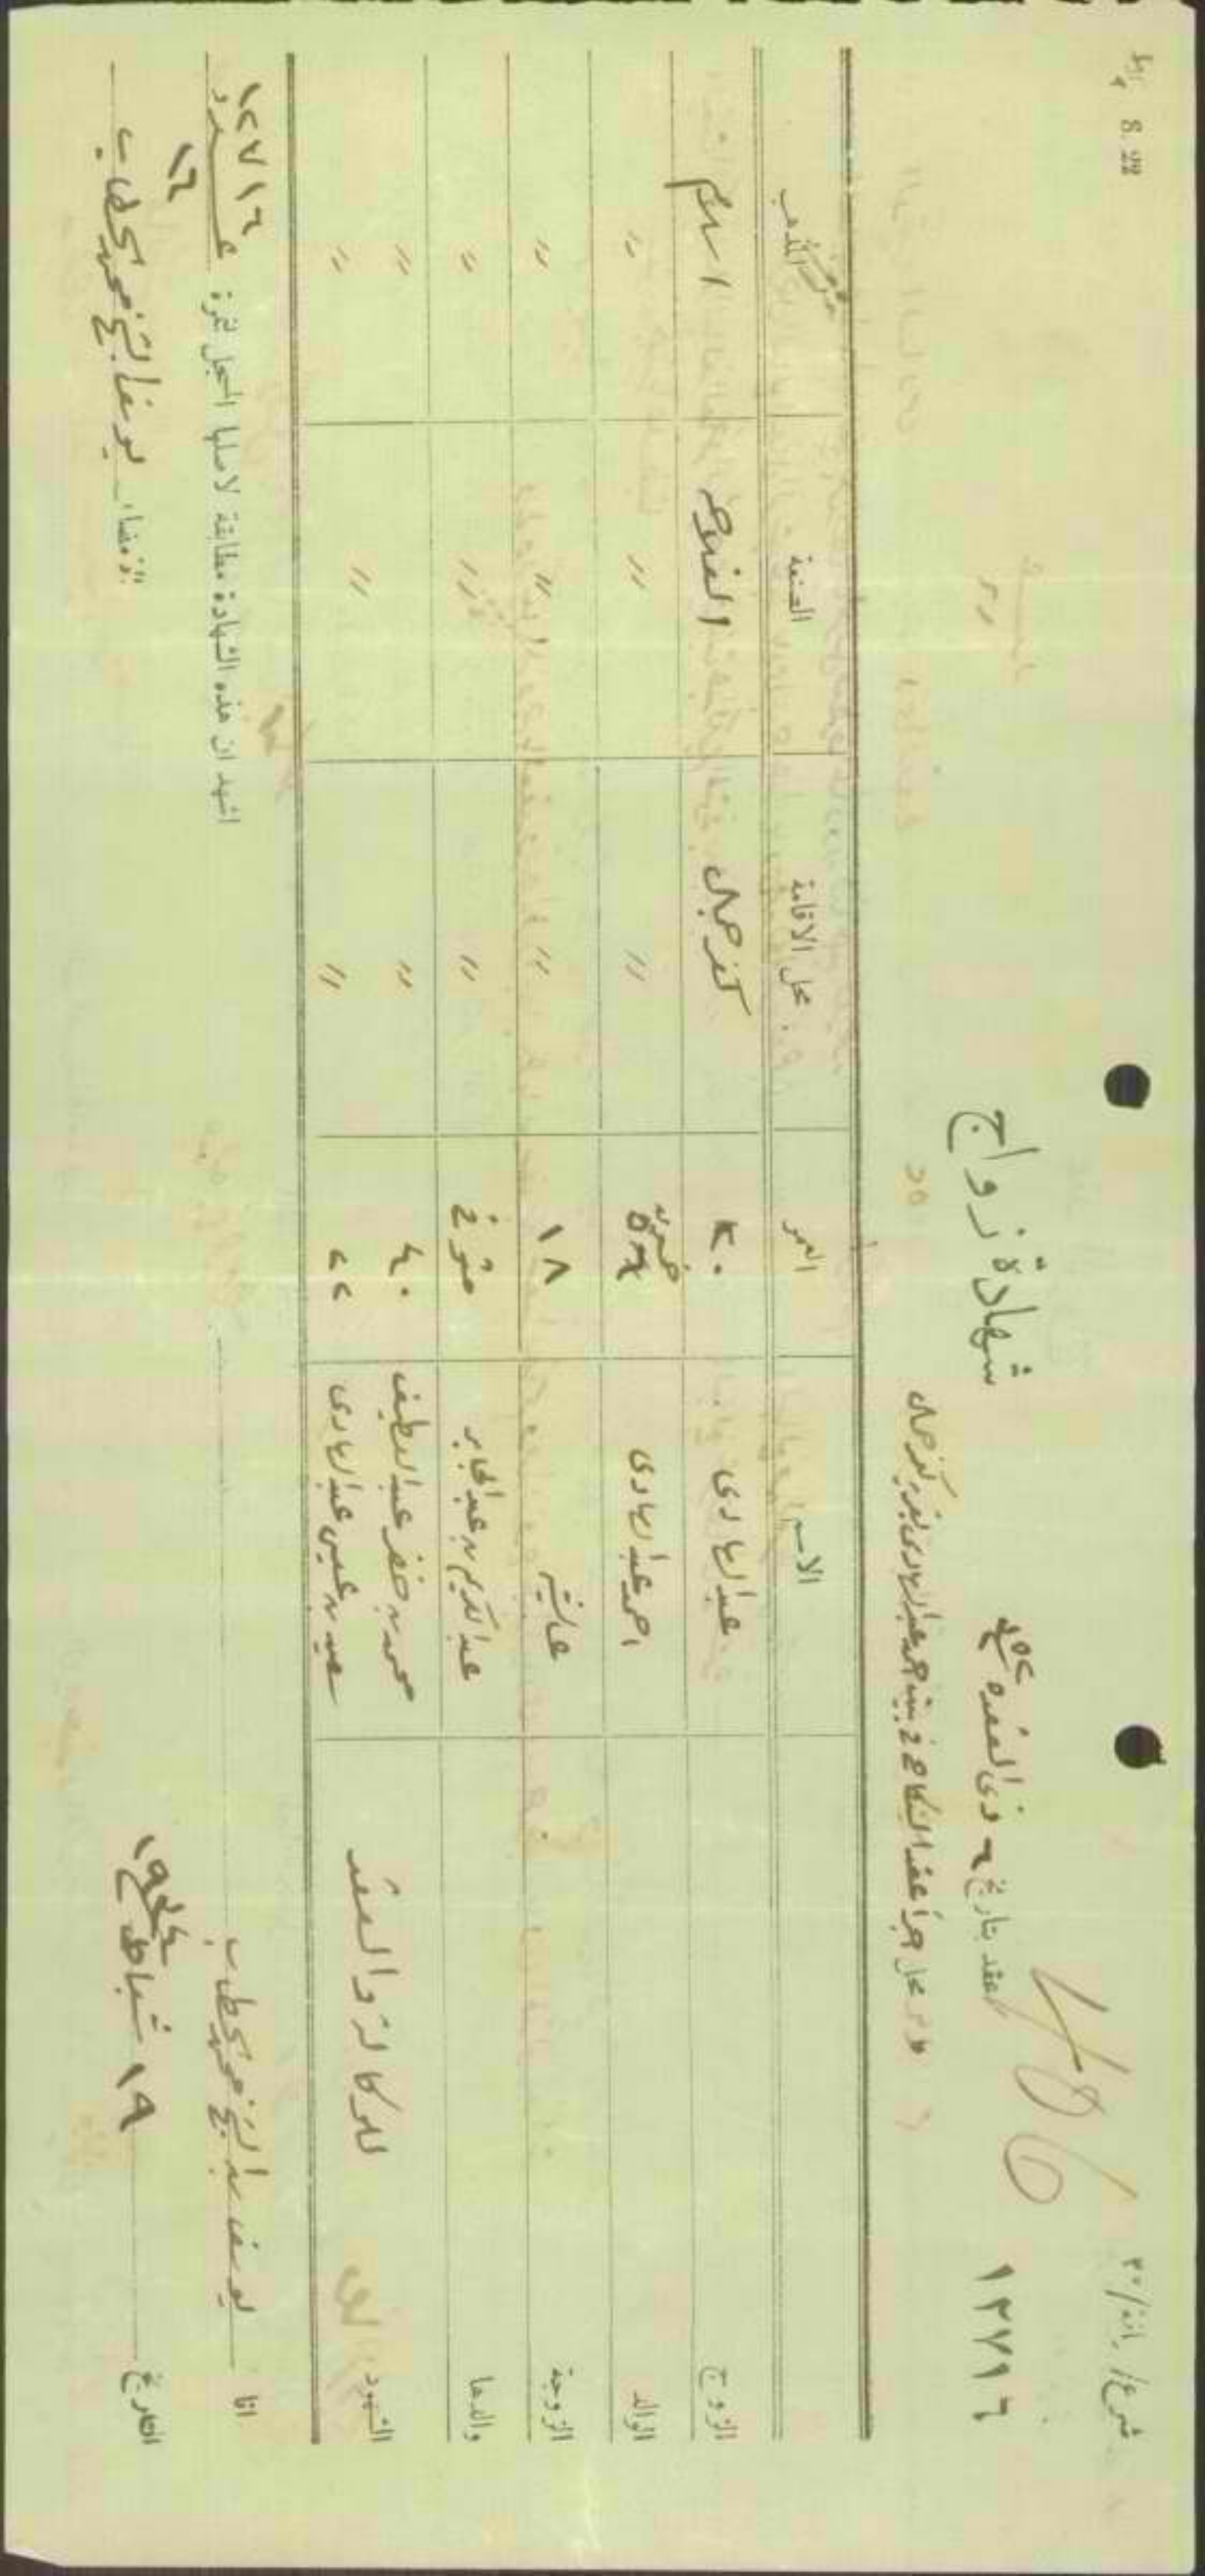 شرع / رانة / ٣٠
١٢٧١٦
406
شهادة زواج
عقد بتاريخ ٦ ذي القعده
محل اجرا عقد النكاح في بيت احمد عبدالهادي بقرية كفرجمال
الاسم العمر محل الاقامة الصنعة المذهب
الزوج عبدالهادي ٣٠ كفرجمال الفلاحه اسلام
الوالد احمد عبدالهادي خمسون " " "
الزوجة عائشه ١٨ " " "
والدها عبدالكريم بن عبدالجابر متوفي " " "
الشهود للوكالة والعقد محمد بن خضر عبداللطيف ٤٠ " " "
سعيد بن عيسى عبدالهادي ٢٢ " "
انا يوسف بن الشيخ محمد الخطيب اشهد ان هذه الشهادة مطابقة لاصلها المسجل نمرة ١٢٧١٦ عدد ١٦
التاريخ ١٩ شباط ١٩٣٤ الامضاء يوسف الشيخ محمد الخطيب